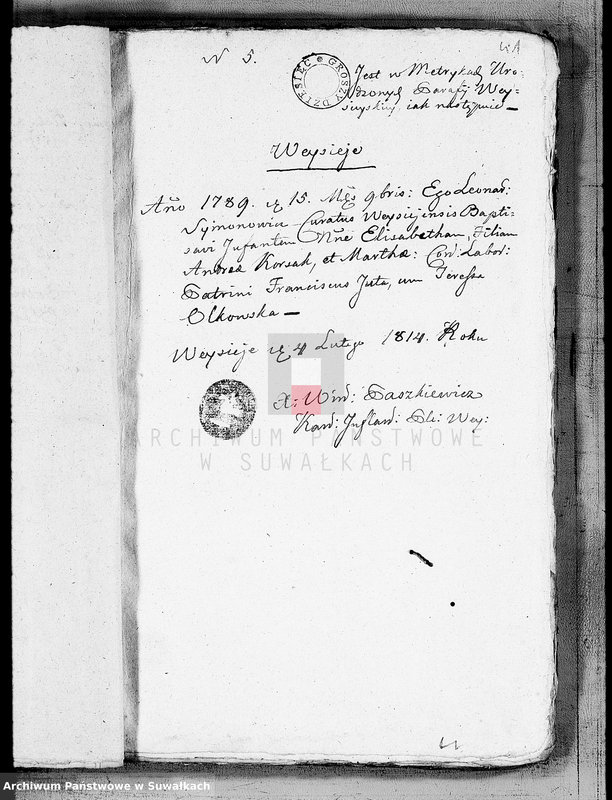 N 5.
4A
DZIESIĘC GROSZY
Jest w Metrykach Uro-
dzonych Parafij Wey-
sieyskiey iak następuie —
Weysieje
Año 1789. d 15. Mẽs 9bris: Ego Leonar:
Symonowicz Curatus Weysiejensis Bapti-
savi Jnfantem Nñe Elisabetham, Filiam
Andreæ Korsak, et Marthæ: Con: Labor:
Patrini Franciscus Juta, cum Teressa
Olkowska —
Weysieje d 4 Lutego 1814. Roku
X: Win: Paszkiewicz
Kan: Jnflan: Ple: Wey:
ARCHIWUM PAŃSTWOWE
W SUWAŁKACH
Archiwum Państwowe w Suwałkach